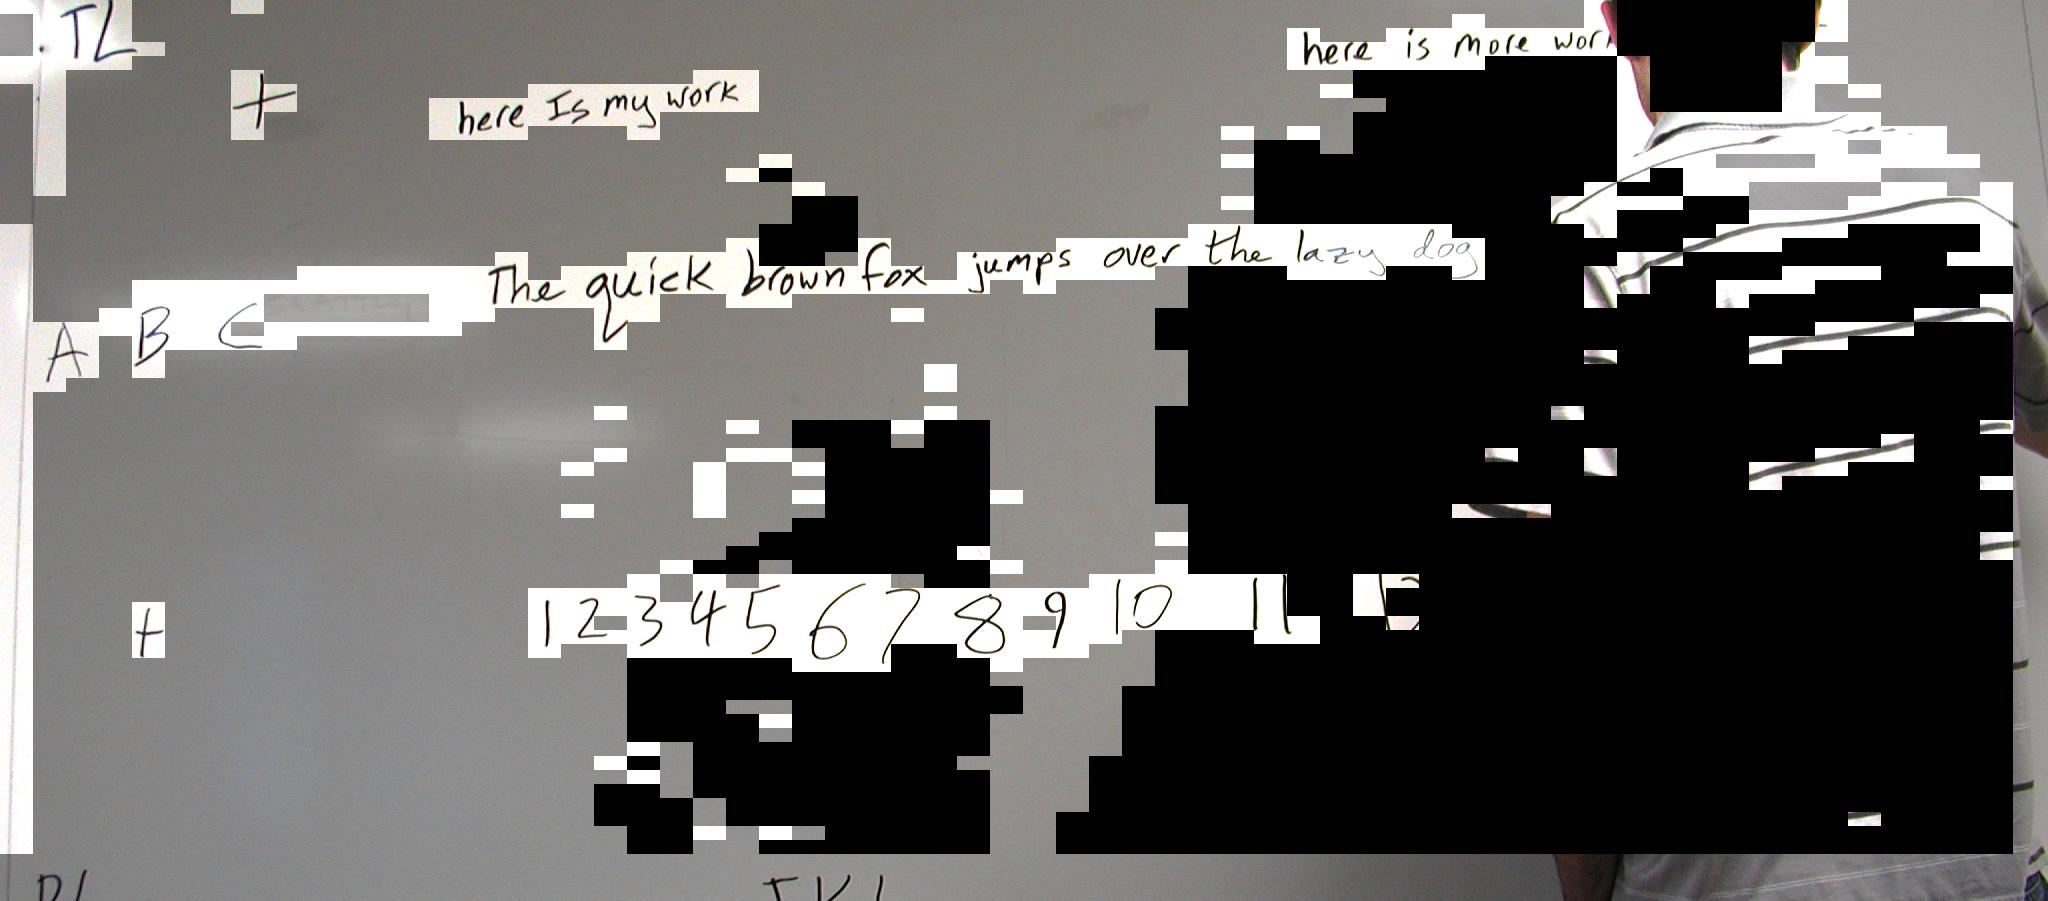 .TL
here is more
+
here Is my work
The quick brown fox jumps over the lazy dog
A B C
+ 1 2 3 4 5 6 7 8 9 10 11